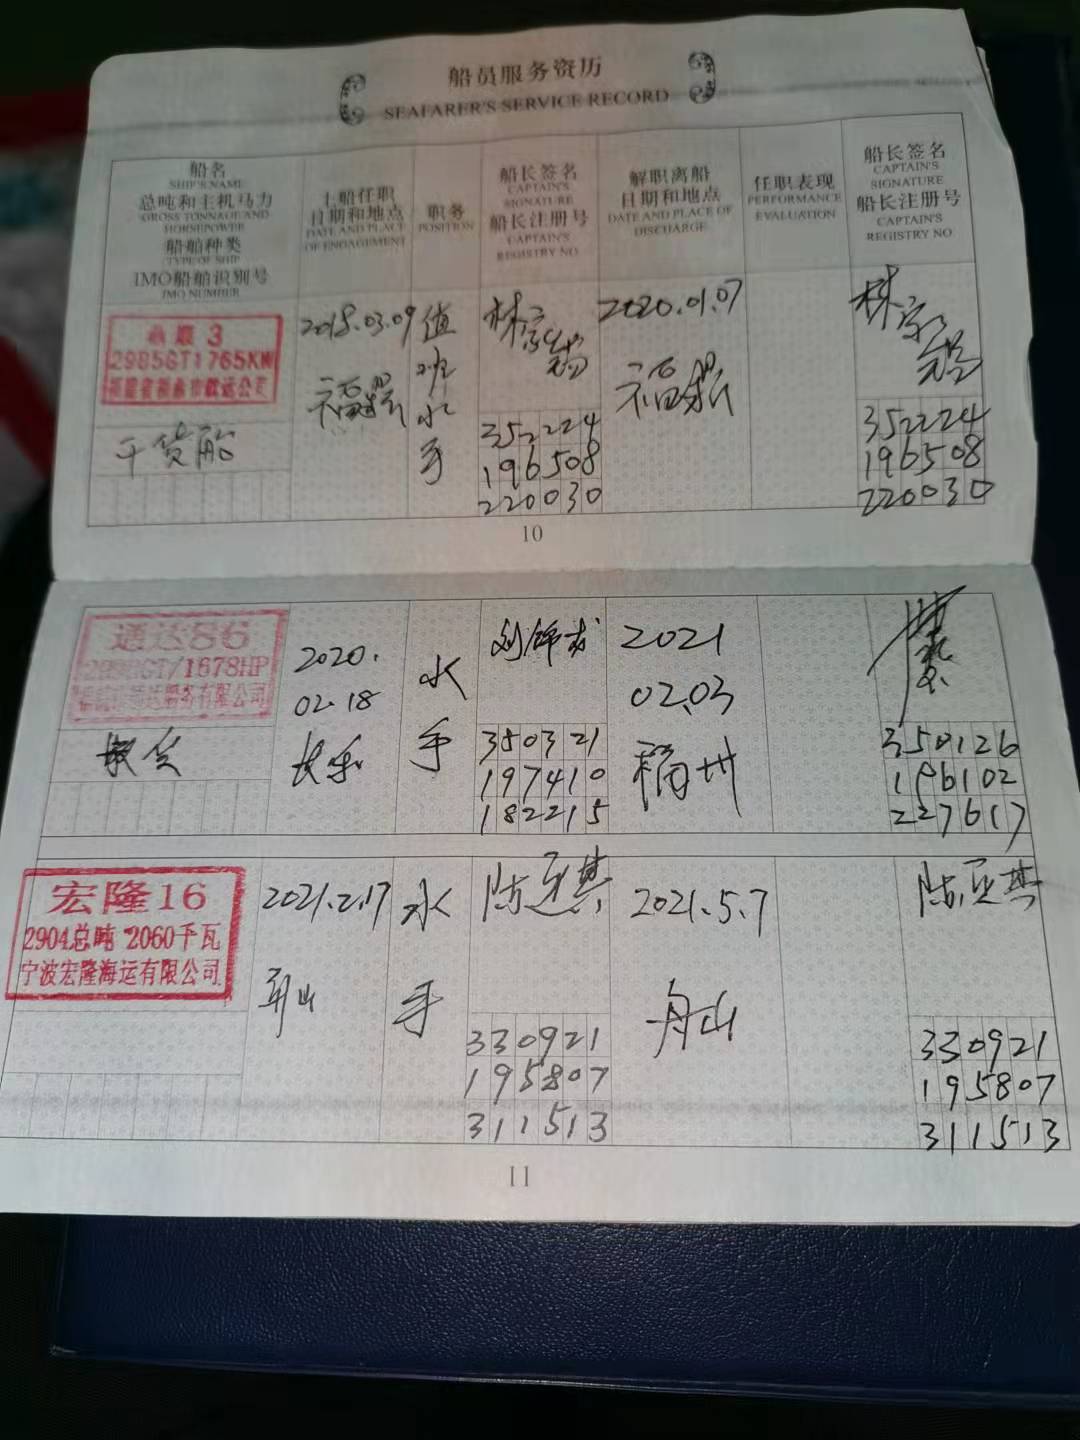 船员服务资历
SEAFARER'S SERVICE RECORD
船名
SHIP'S NAME
总吨和主机马力
GROSS TONNAGE AND
HORSEPOWER
船舶种类
TYPE OF SHIP
IMO船舶识别号
IMO NUMBER
上船任职
日期和地点
DATE AND PLACE
OF ENGAGEMENT
职务
POSITION
船长签名
CAPTAIN'S
SIGNATURE
船长注册号
CAPTAIN'S
REGISTRY NO
解职离船
日期和地点
DATE AND PLACE OF
DISCHARGE
任职表现
PERFORMANCE
EVALUATION
船长签名
CAPTAIN'S
SIGNATURE
船长注册号
CAPTAIN'S
REGISTRY NO
3
2985GT1765KW
干货船
2018.03.09
福鼎
值
班
水
手
林
352224
196508
220030
2020.01.07
福鼎
林
352224
196508
220030
10
通达86
GT/1678HP
散货
2020.
02.18
长乐
水
手
刘锦
350321
197410
182215
2021
02.03
福州
350126
196102
227617
宏隆16
2904总吨 2060千瓦
宁波宏隆海运有限公司
2021.2.17
舟山
水
手
陈亚其
330921
195807
311513
2021.5.7
舟山
陈亚其
330921
195807
311513
11